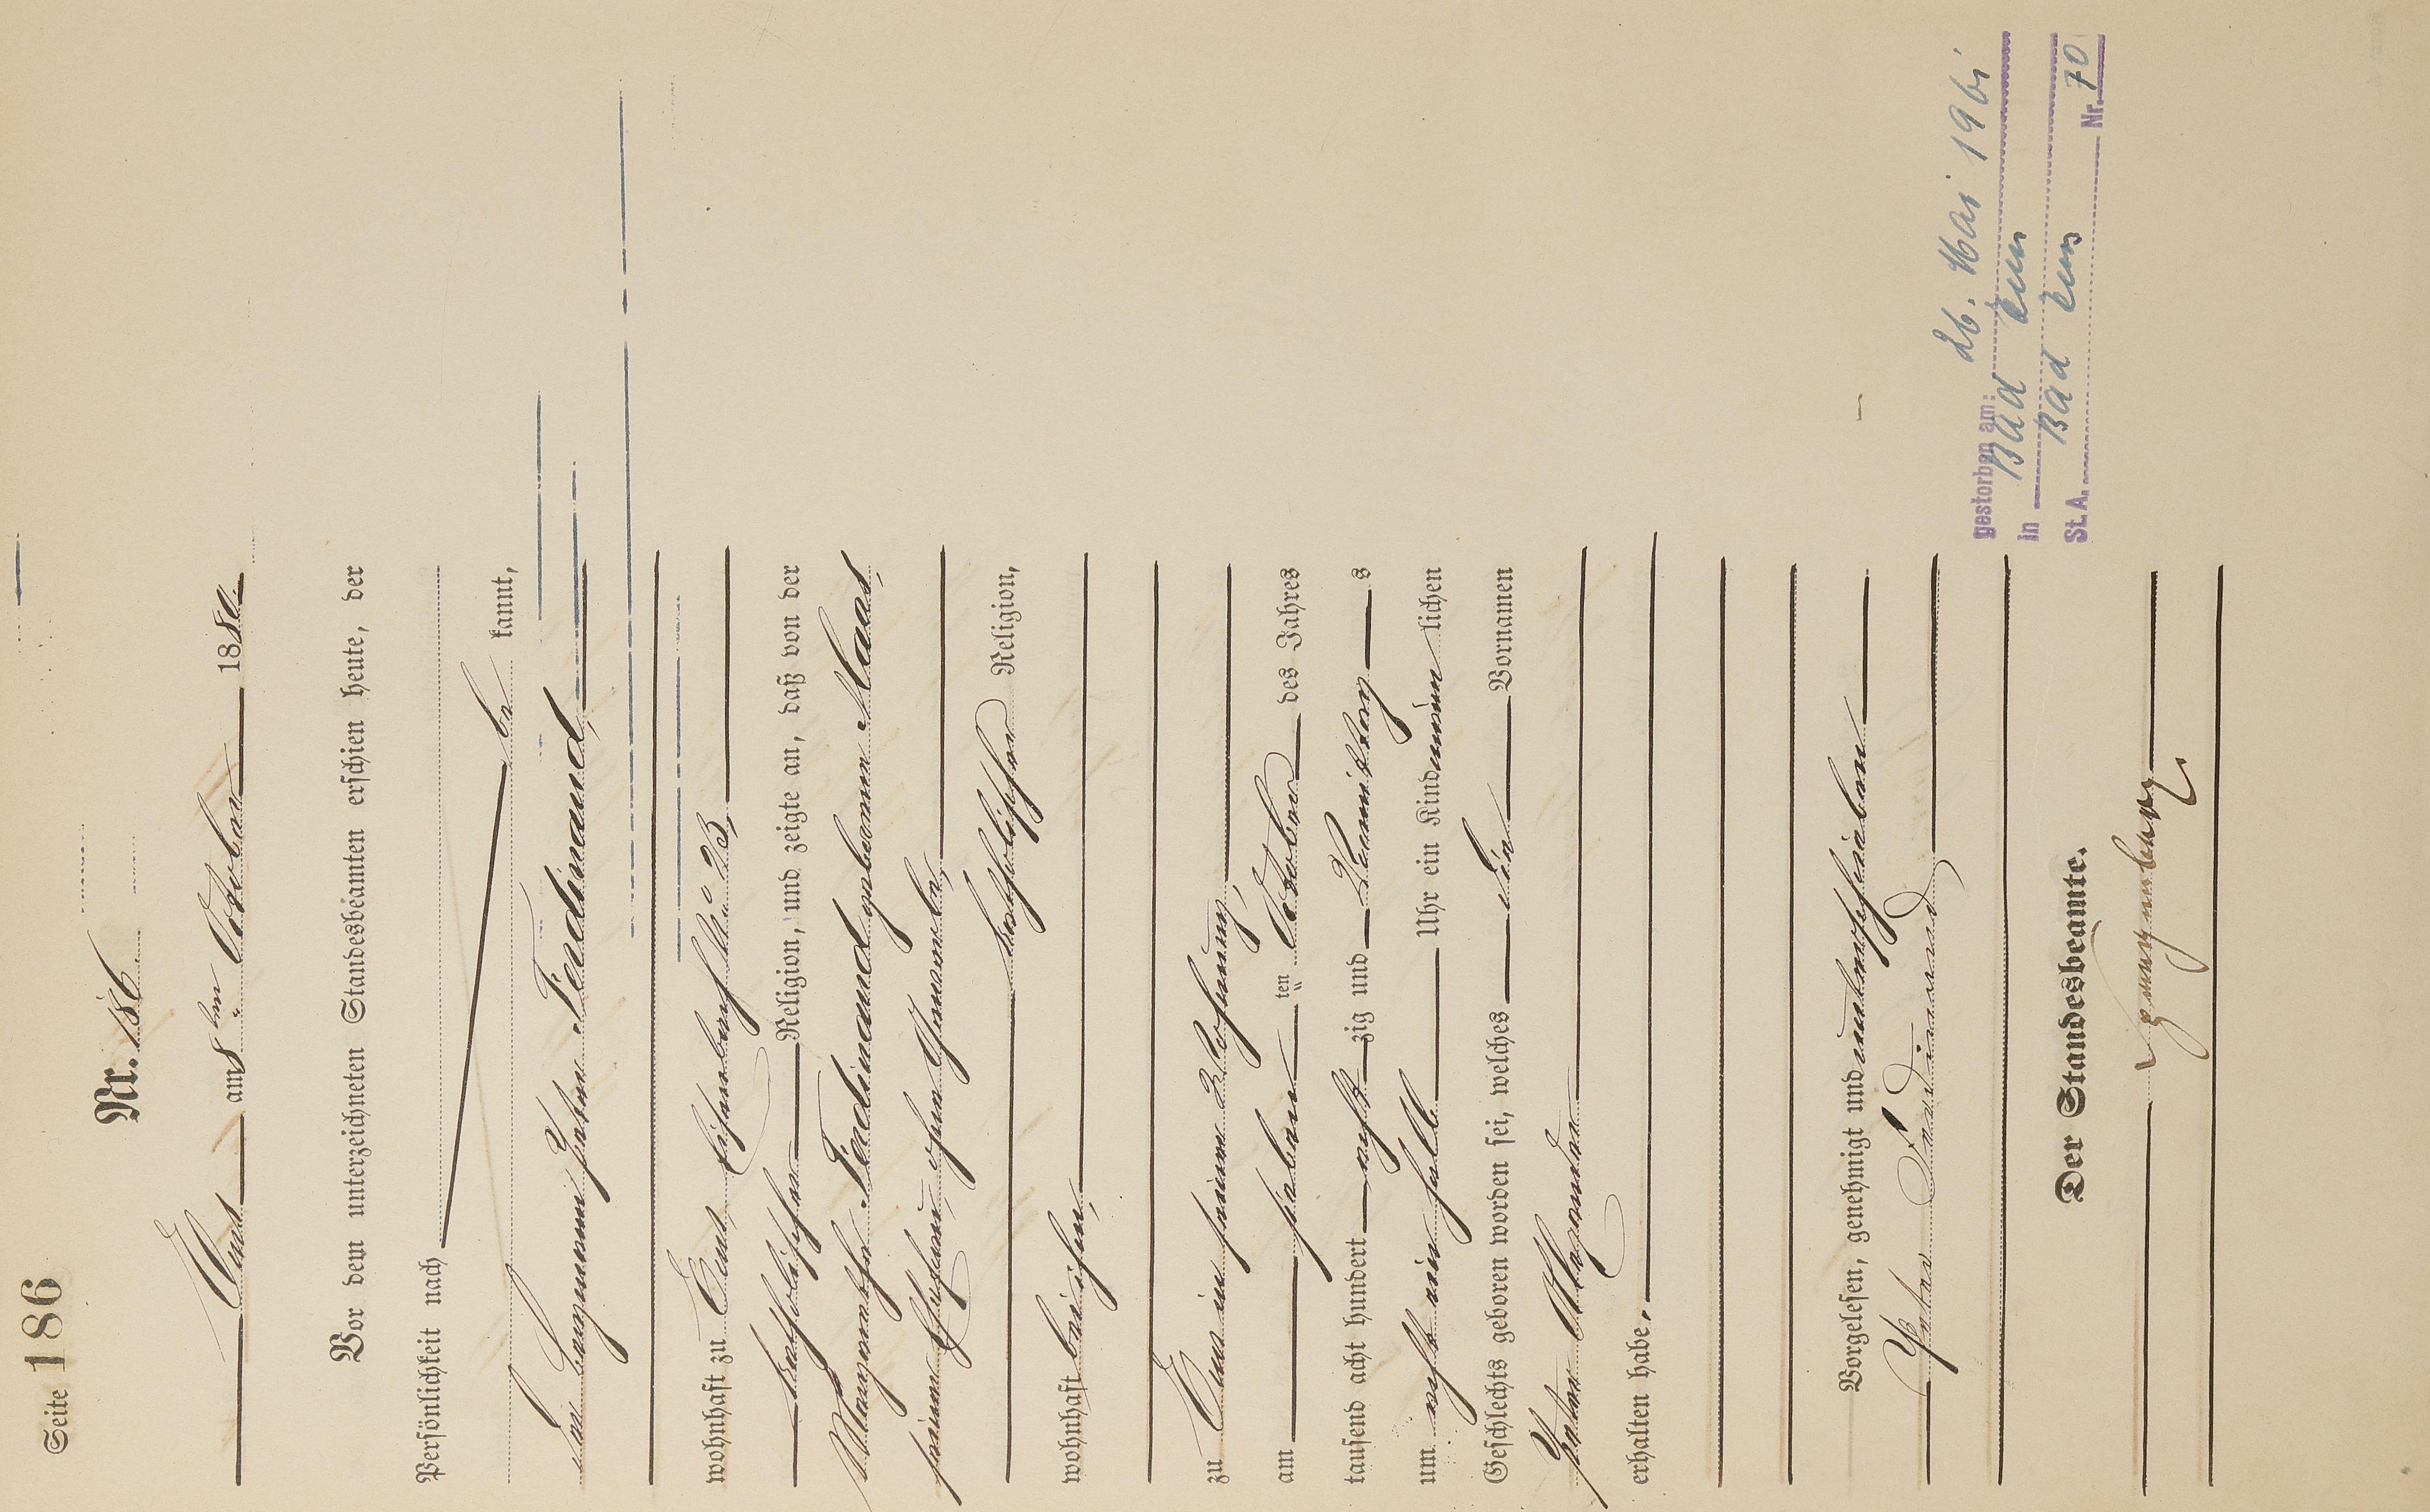 Seite 186
Nr. 186.
Ems am 8ten October 1880.
Vor dem unterzeichneten Standesbeamten erschien heute, der
Persönlichkeit nach
be kannt,
der Taguener Peter Ferdinand,
wohnhaft zu Ems, No 23,
katholischer Religion, und zeigte an, daß von der
Margarethe Ferdinand geborenen Maus,
seiner Ehefrau, ohne Gewerbe,
katholischer Religion,
wohnhaft bei ihm,
zu Ems in seiner Wohnung,
am sieben ten October des Jahres
tausend acht hundert acht zig und Vormittags
um acht ein halb Uhr ein Kind männlichen
Geschlechts geboren worden sei, welches die Vornamen
Peter Alexander
erhalten habe.
Vorgelesen, genehmigt und unterschrieben
Peter Ferdinand
Der Standesbeamte.
gestorben am: 26. Mai 1961
in Bad Ems
St.A. Bad Ems Nr. 70